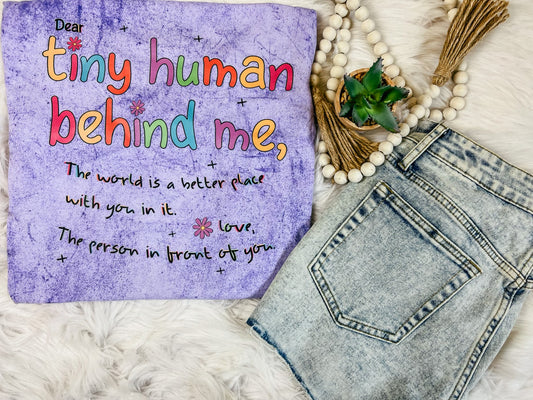 Dear
tiny human
behind me,
The world is a better place
with you in it.
love,
The person in front of you.